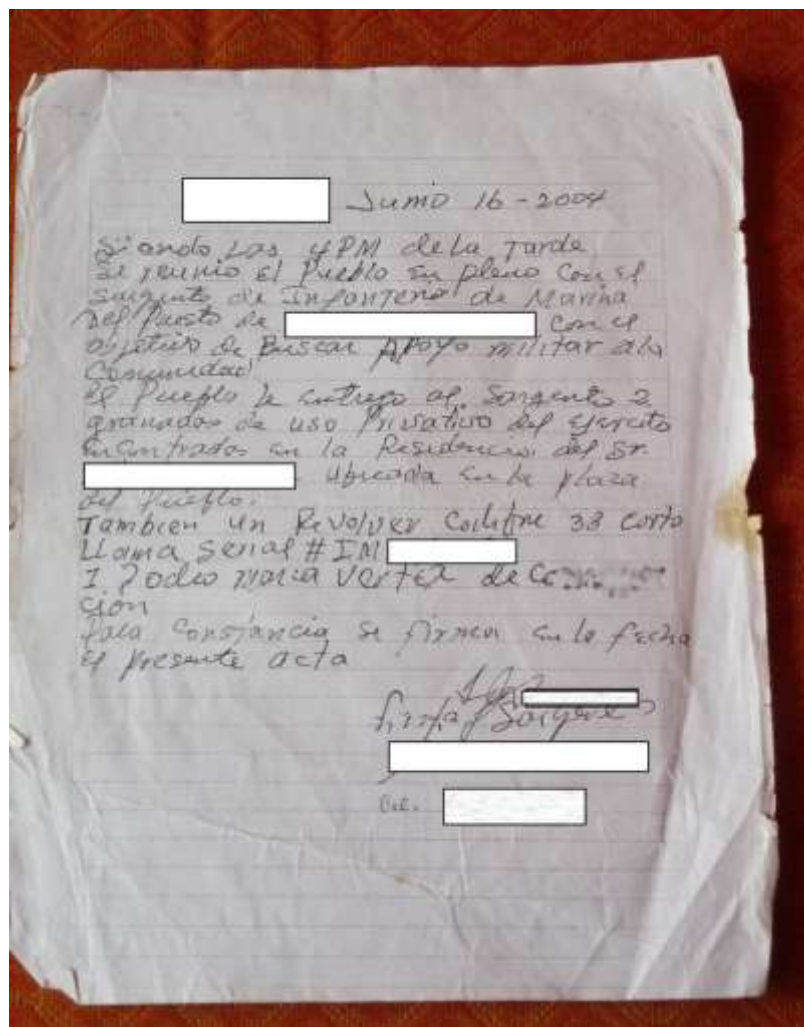 Junio 16-2004
Siendo Las 4PM de La Tarde
se reunio el Pueblo en pleno con el
Sargento de Infanteria de Marina
Del Puesto de con el
objetivo de Buscar Apoyo militar a la
Comunidad
el Pueblo le entrego al Sargento 2
granadas de uso Privativo del ejercito
encontradas en la Residencia del Sr.
Ubicada en la plaza
del Pueblo.
Tambien un Revolver 38 corto
LLama Serial # IM
1 marca de
cion
Para Constancia se firma en la fecha
el presente acta
firma